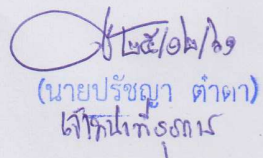 ๒๕/๑๒/๖๑
(นายปรัชญา ตำตา)
เจ้าหน้าที่ธุรการ